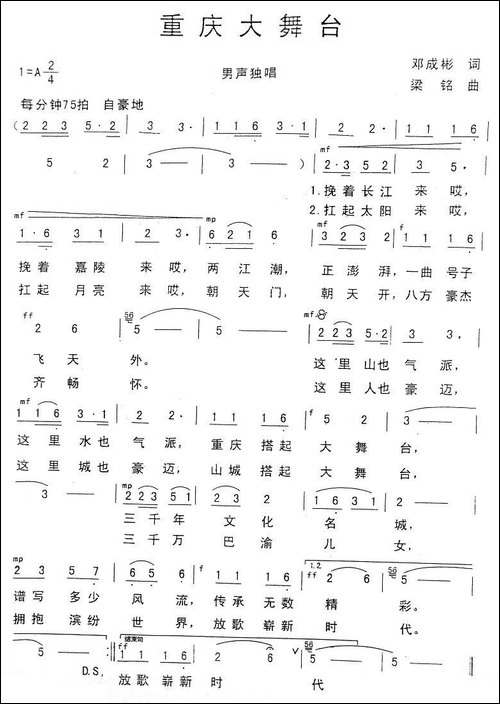 重庆大舞台
1=A 2/4 男声独唱 邓成彬 词
梁铭 曲
每分钟75拍 自豪地
(2 2 3 5·2 | 3 3· | 1 1 6 3·1 | 2 2· | 1 1 1 6
mf
5 2 | 3 — | 3 — ) | 2·3 5 2 | 3 5·
1.挽着长江 来哎,
2.扛起太阳 来哎,
mf mp mf f
1·6 3 1 | 2 3· | 6 2 1 6 | 3 2 3 2 | 1 1 1 6
挽着 嘉陵 来哎, 两江潮, 正澎湃, 一曲 号子
扛起 月亮 来哎, 朝天门, 朝天开, 八方 豪杰
ff mf
2 6 | 5 — | 5 — | 2 2 3 5·2 | 3 3·
飞天 外。 这里山也 气派,
齐畅 怀。 这里人也 豪迈,
mf f
1 1 6 3·1 | 2 2· | 1 1 1 6 | 5 2 | 3 —
这里 水也 气派, 重庆 搭起 大舞 台,
这里 城也 豪迈, 山城 搭起 大舞 台,
mp
3 — | 2 2 3 5 1 | 6 5· | 1 6 3 1 | 2 —
三千年 文化 名 城,
三千万 巴渝 儿 女,
mp f 1.2. ff
2 3 5 7 | 6 6 5 | 1 1 1 6 | 2 6 | 5 —
谱写 多少 风流, 传承 无数 精 彩。
拥抱 滨纷 世界, 放歌 崭新 时 代。
结束句 ff
5 — :| 1 1 1 6 | 2 6 | 5 — | 5 —
D.S. 放歌 崭新 时 代